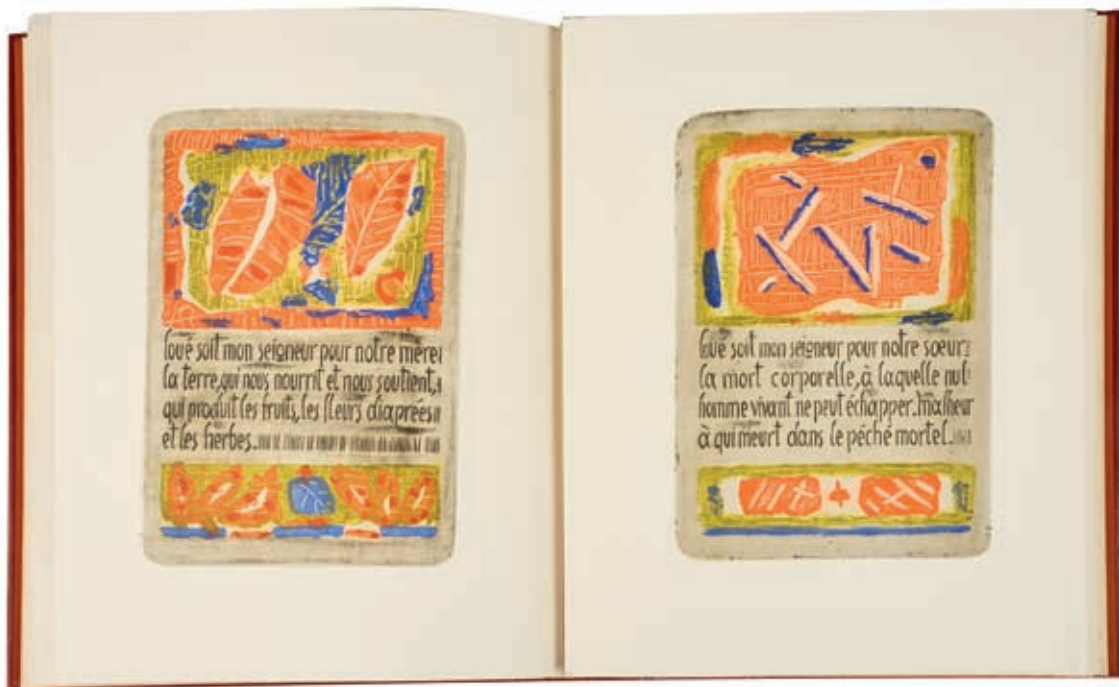 loué soit mon seigneur pour notre mère
la terre, qui nous nourrit et nous soutient,
qui produit les fruits, les fleurs diaprées
et les herbes.
loué soit mon seigneur pour notre sœur
la mort corporelle, à laquelle nul
homme vivant ne peut échapper. malheur
à qui meurt dans le péché mortel.